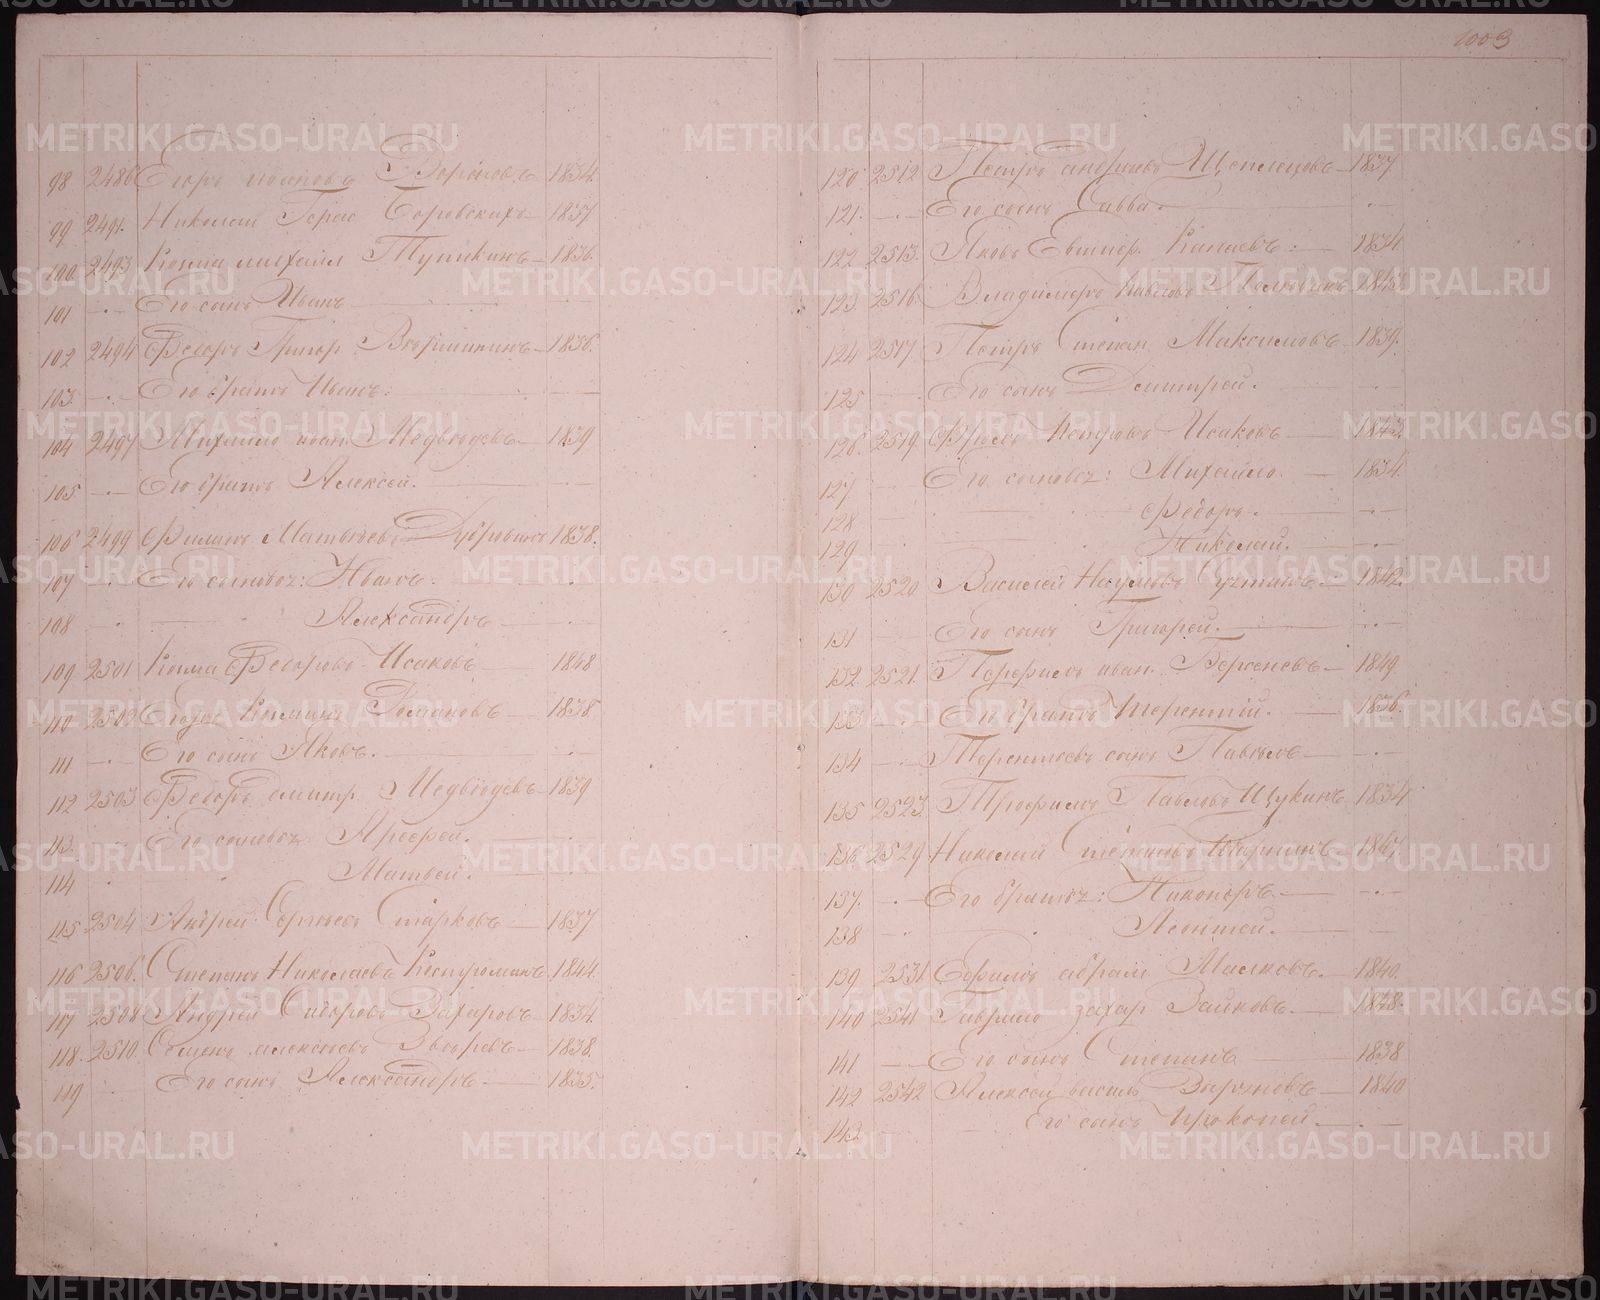 1003
98 2486 Егоръ Ивановъ 1834.
99 2491. Николай Герас Боровскихъ 1837
100. 2493 Козма михаил Тупикинъ 1836.
101 Его сынъ Иванъ
102 2494 Федоръ Григор 1836.
103. Его братъ Иванъ:
104 2497 Михайло иван Медвѣдевъ 1839
105 Его братъ Алексей.
106 2499 Филипъ Матвѣевъ Дубровинъ 1838.
107 Его сыновья: Иванъ.
108 Александръ
109 2501 Козма Федоровъ Исаковъ 1848
110 2502 Егоръ Козминъ 1838
111 Его сынъ Яковъ.
112 2503 Федоръ дмитр Медвѣдевъ 1839
113. Его сыновья
114 Матвей.
115 2504 Андрей Сергѣевъ Старковъ 1837
116 2506. Степанъ Николаевъ Костроминъ 1844.
117 2508 Андрей Сидоровъ Захаровъ 1834.
118. 2510. Семенъ алексѣевъ 1838.
119 Его сынъ Александръ 1835.
120 2512 Петръ андреевъ 1837
121. Его сынъ Савва.
122 2513. Яковъ Капаевъ: 1834
123 2516. Владимеръ Павловъ
124 2517 Петръ Степан Максимовъ 1839.
125 Его сынъ Дмитрей.
126. 2519. Фролъ Петровъ Исаковъ 1843.
127 Его сыновья: Михайло. 1834.
128 Федоръ.
129 Николай.
130 2520 Василей Наумовъ 1842.
131 Его сынъ Григорей.
132 2521. Перфилъ иван. 1849
133 Его братъ Терентий. 1836.
134 Терентьевъ сынъ Павелъ
135 2523. Трофимъ Павловъ Щукинъ 1834
136 2529 Николай Степановъ 1847
137. Его братья: Никоноръ
138 Леонтей.
139 2531 Ефимъ абрам Малковъ. 1840.
140 2541 Гаврило захар Зайковъ. 1848.
141 Его сынъ Степанъ 1838
142 2542 Алексей васил Зыряновъ 1840
143 Его сынъ Прокопей.
METRIKI.GASO-URAL.RU